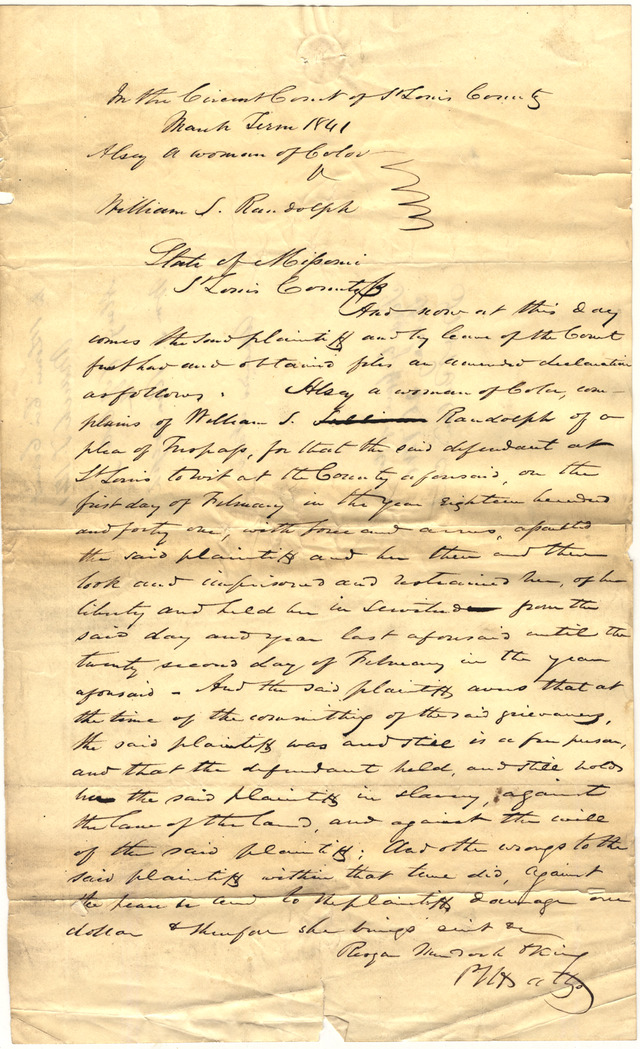 In the Circuit Court of St Louis County
March Term 1841
Alsey a woman of Color
v
William S. Randolph
State of Missouri
St Louis County ss
And now at this day
comes the said plaintiff and by leave of the Court
first had and obtained files an amended declaration
as follows. Alsey a woman of Color, com-
plains of William S. Randolph of a
plea of Trespass, for that the said defendant at
St Louis to wit at the County aforesaid, on the
first day of February in the year eighteen hundred
and forty one, with force and arms, assaulted
the said plaintiff and her then and there
took and imprisoned and restrained her, of her
liberty and held her in Servitude from the
said day and year last aforesaid until the
twenty second day of February in the year
aforesaid - And the said plaintiff avers that at
the time of the committing of the said grievances,
the said plaintiff was and still is a free person,
and that the defendant held, and still holds
her the said plaintiff in slavery, against
the laws of the land, and against the will
of the said plaintiff; And other wrongs to the
said plaintiff within that time did, against
the peace &c and to the plaintiffs damage one
dollar & therefore she brings suit &c
Murdoch & King